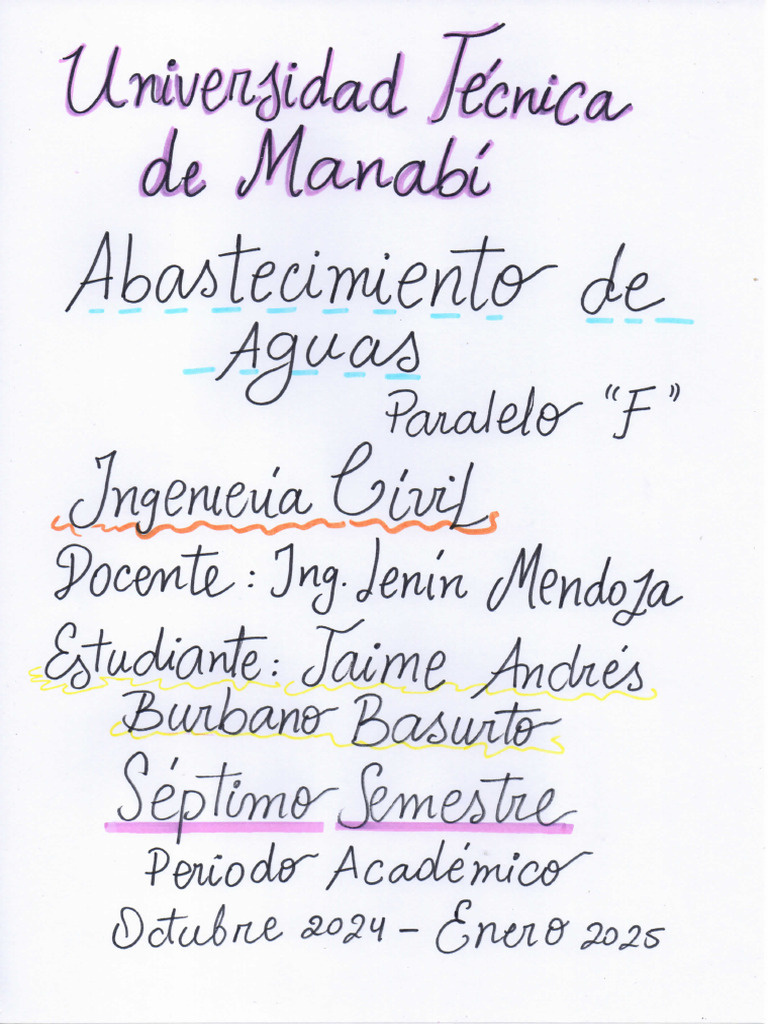 Universidad Técnica
de Manabí
Abastecimiento de
Aguas
Paralelo "F"
Ingeniería Civil
Docente: Ing. Lenín Mendoza
Estudiante: Jaime Andrés
Burbano Basurto
Séptimo Semestre
Periodo Académico
Octubre 2024 - Enero 2025